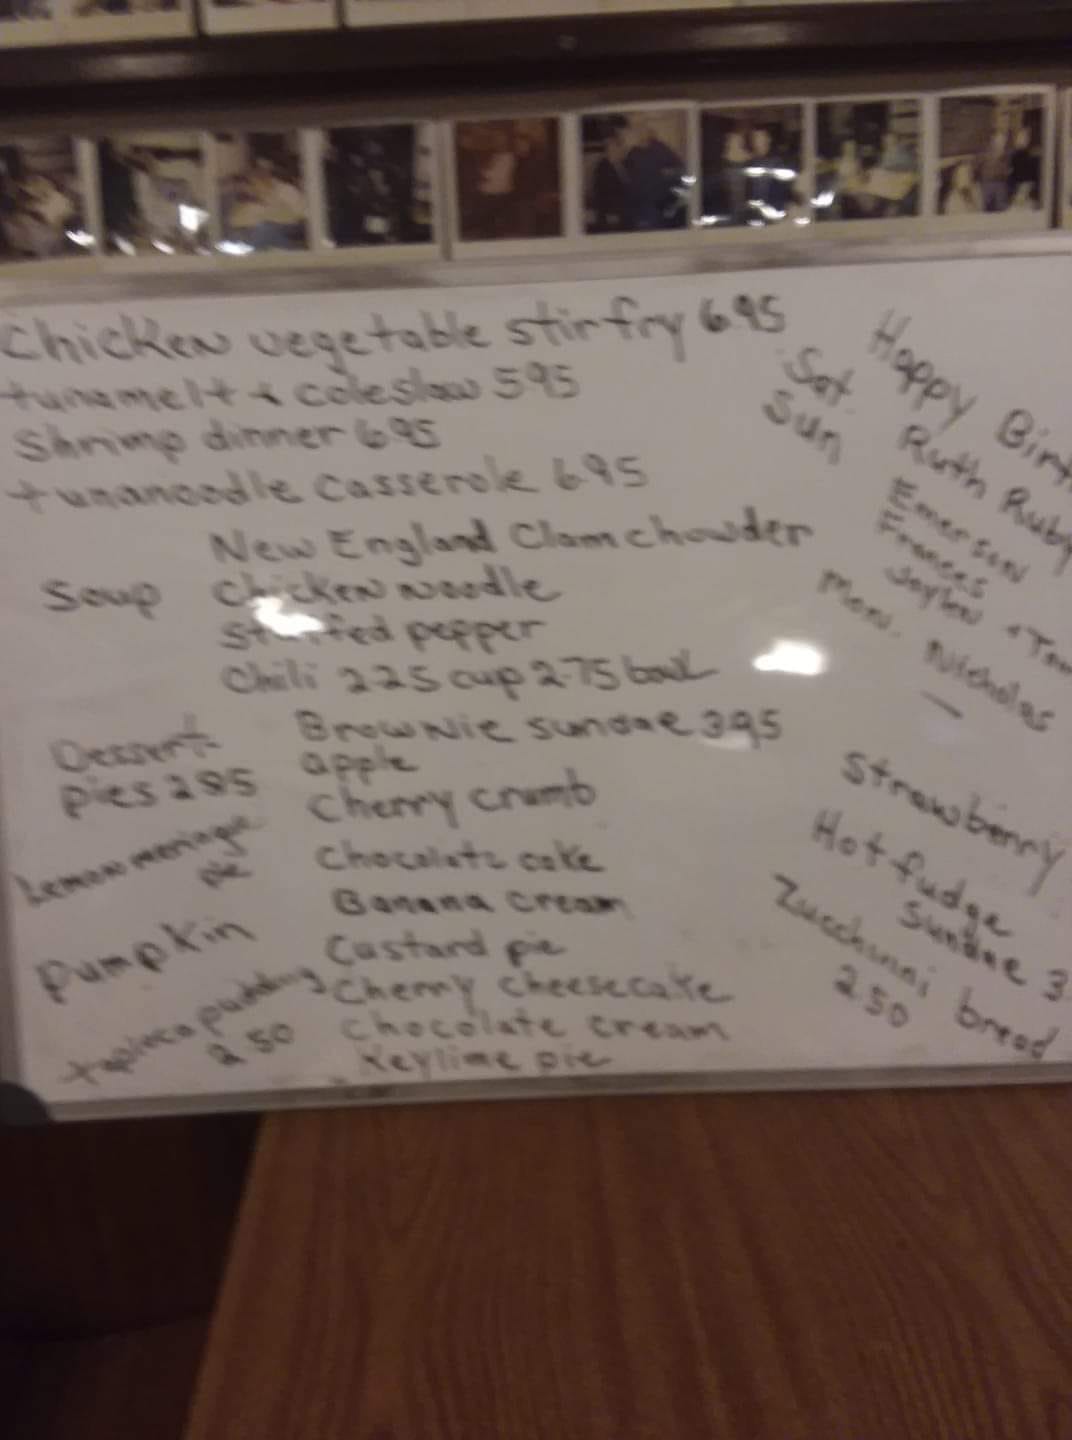 Chicken vegetable stirfry 6.95
tunamelt + coleslaw 595
Shrimp dinner 695
tunanoodle casserole 6.95
Soup
New England Clam chowder
Chicken noodle
Stuffed pepper
Chili 225 cup 2.75 bowl
Dessert
pies 285
Brownie sundae 395
apple
Cherry crumb
Lemon meringe
pie
Chocolate cake
Banana cream
Pumpkin
Custard pie
Cherry cheesecake
tapioca pudding
250
Chocolate cream
Keylime pie
Happy Birt
Sat.
Ruth Ruby
Sun
Emerson
Frances
Jaylen +
Mon.
Nicholas
Strawberry
Hot fudge
Sundae 3
Zucchinni bread
250